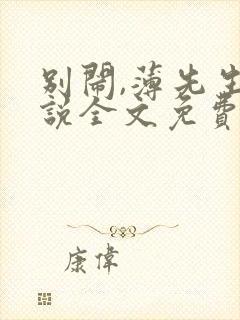 别鬧,薄先生
説全文免費
康偉